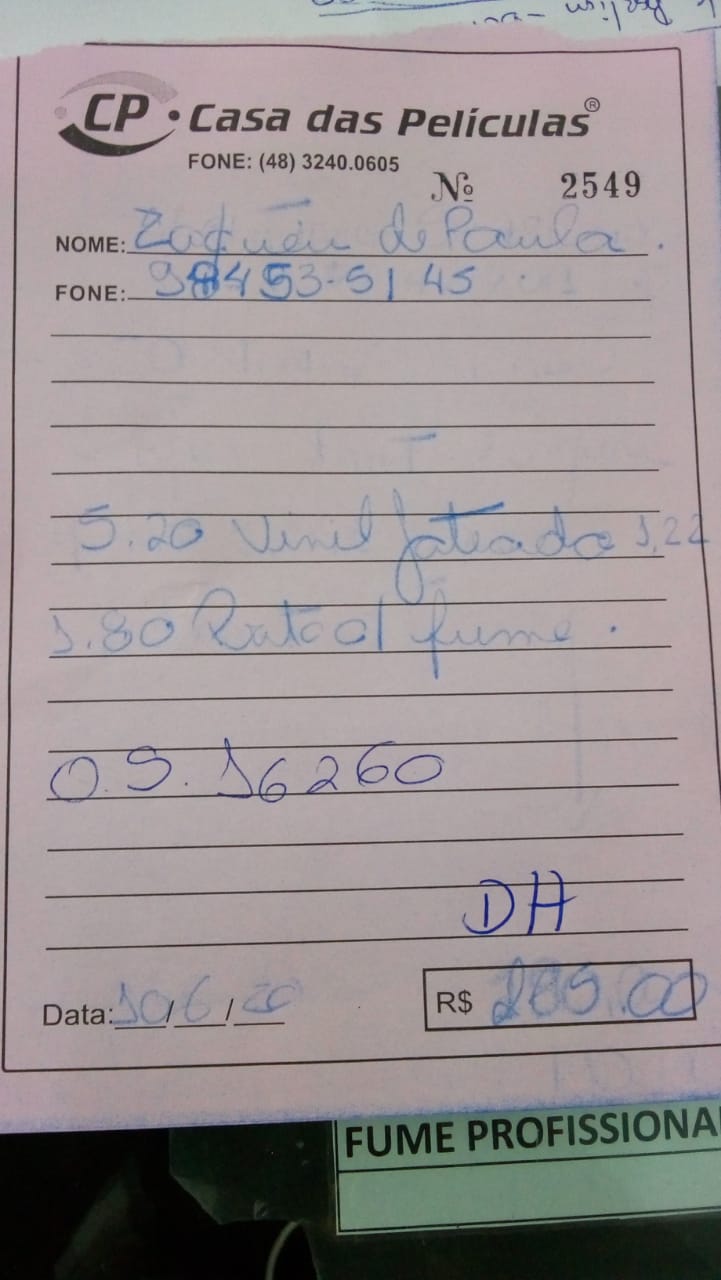 CP • Casa das Películas®
FONE: (48) 3240.0605
Nº 2549
NOME: Zaqueu de Paula.
FONE: 98453-5145
5.20 Vinil Jateado 1,22
1.80 fume.
O.S. 16260
DH
Data: 10/6/20
R$ 00
FUME PROFISSIONA